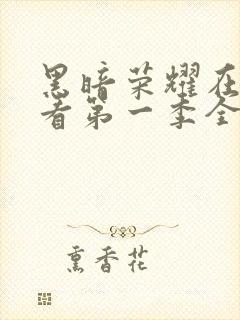 黑暗荣耀在
看第一季全
熏香花